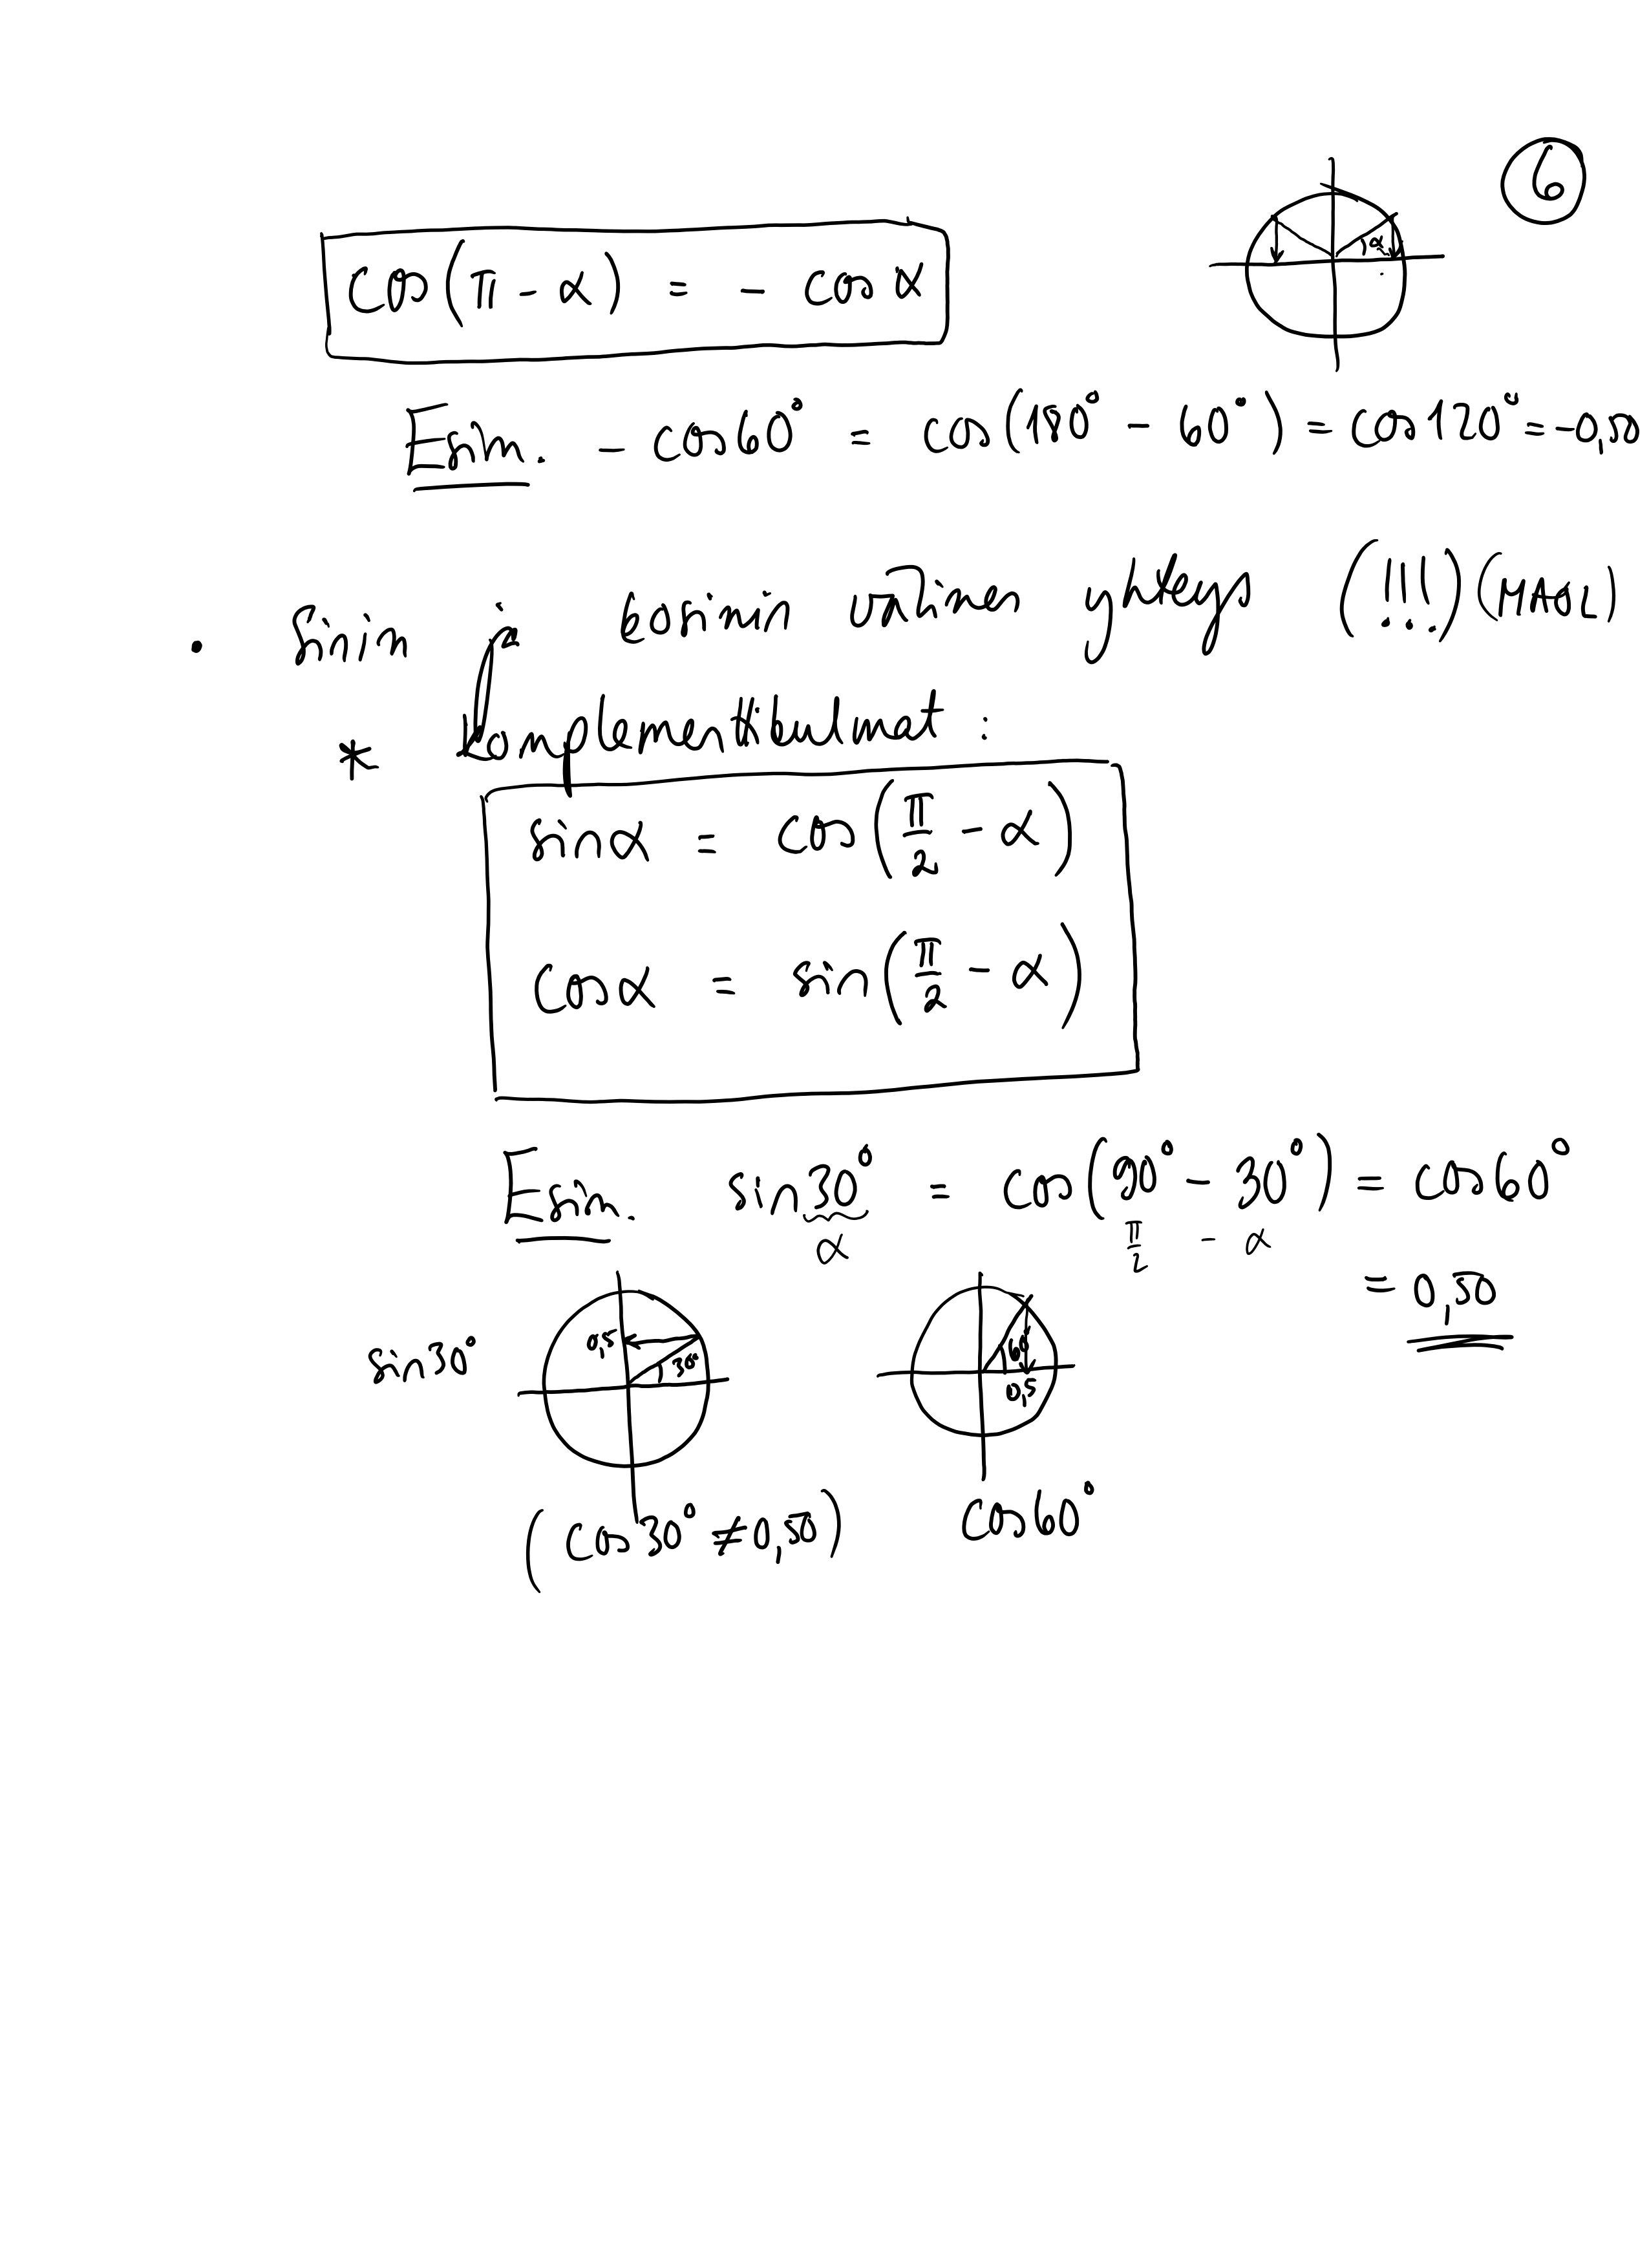 6
cos(π - α) = - cos α
α
Esim. - cos60° = cos(180° - 60°) = cos120° = -0,50
• sinin ja kosinin välinen yhteys (!!!) (MAOL)
* komplementtikulmat :
sinα = cos(π/2 - α)
cosα = sin(π/2 - α)
Esim. sin30° = cos(90° - 30°) = cos60°
α π/2 - α
= 0,50
sin30° 0,5 30° 60° 0,5
(cos30° ≠ 0,50) cos60°